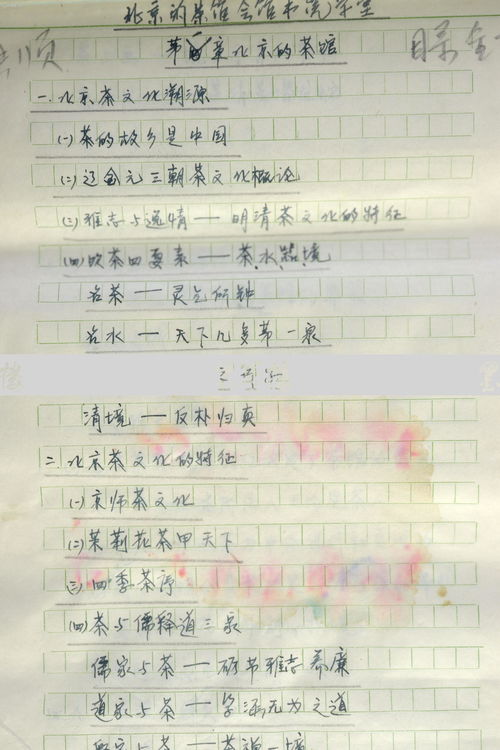 北京的茶馆会馆书院学堂
第四章北京的茶馆
一、北京茶文化溯源
(一)茶的故乡是中国
(二)辽金元三朝茶文化概论
(三)雅志与逸情——明清茶文化的特征
(四)饮茶四要素——茶、水、器、境
名茶——灵气所钟
名水——天下几多第一泉
清境——反朴归真
二、北京茶文化的特征
(一)京师茶文化
(二)茉莉花茶甲天下
(三)四季茶序
(四)茶与儒释道三家
儒家与茶——砺节雅志养廉
道家与茶——学涵无为之道
茶禅一境